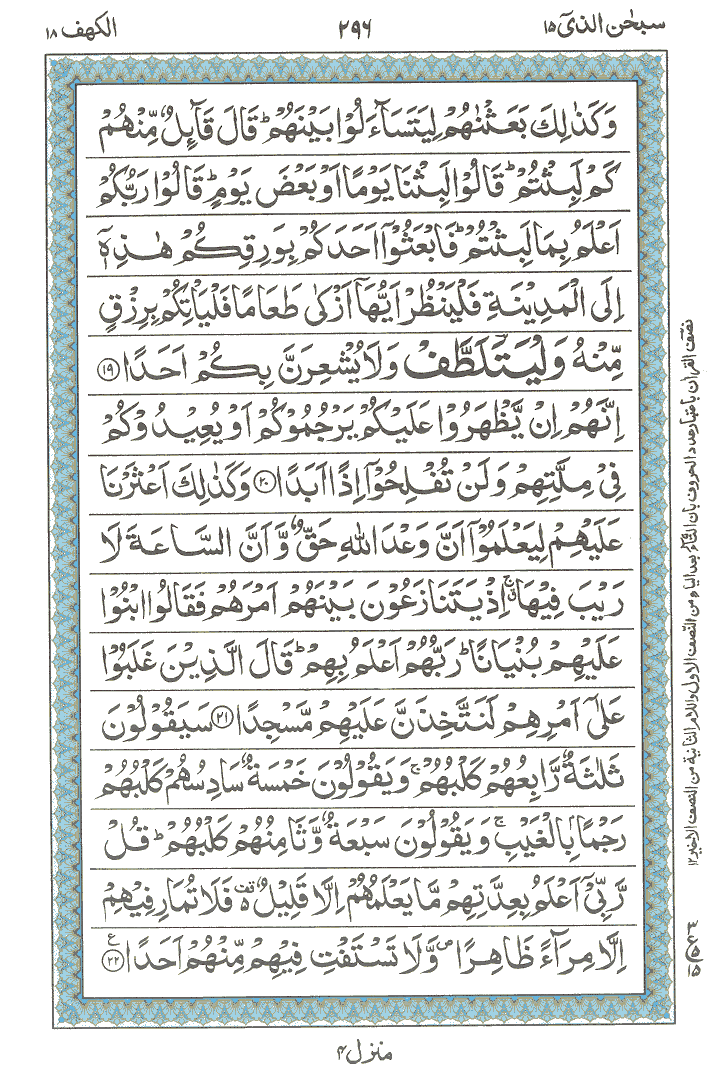 سبحٰن الذیٓ ۱۵
۲۹۶
الكهف ۱۸
وَكَذٰلِكَ بَعَثْنٰهُمْ لِيَتَسَآءَلُوْا بَيْنَهُمْ ؕ قَالَ قَآئِلٌ مِّنْهُمْ
كَمْ لَبِثْتُمْ ؕ قَالُوْا لَبِثْنَا يَوْمًا اَوْ بَعْضَ يَوْمٍ ؕ قَالُوْا رَبُّكُمْ
اَعْلَمُ بِمَا لَبِثْتُمْ ؕ فَابْعَثُوْۤا اَحَدَكُمْ بِوَرِقِكُمْ هٰذِهٖۤ
اِلَى الْمَدِيْنَةِ فَلْيَنْظُرْ اَيُّهَاۤ اَزْكٰى طَعَامًا فَلْيَاْتِكُمْ بِرِزْقٍ
مِّنْهُ وَلْيَتَلَطَّفْ وَلَا يُشْعِرَنَّ بِكُمْ اَحَدًا ۝۱۹
اِنَّهُمْ اِنْ يَّظْهَرُوْا عَلَيْكُمْ يَرْجُمُوْكُمْ اَوْ يُعِيْدُوْكُمْ
فِيْ مِلَّتِهِمْ وَلَنْ تُفْلِحُوْۤا اِذًا اَبَدًا ۝۲۰ وَكَذٰلِكَ اَعْثَرْنَا
عَلَيْهِمْ لِيَعْلَمُوْۤا اَنَّ وَعْدَ اللّٰهِ حَقٌّ وَّاَنَّ السَّاعَةَ لَا
رَيْبَ فِيْهَا ۚ اِذْ يَتَنَازَعُوْنَ بَيْنَهُمْ اَمْرَهُمْ فَقَالُوا ابْنُوْا
عَلَيْهِمْ بُنْيَانًا ؕ رَبُّهُمْ اَعْلَمُ بِهِمْ ؕ قَالَ الَّذِيْنَ غَلَبُوْا
عَلٰۤى اَمْرِهِمْ لَنَتَّخِذَنَّ عَلَيْهِمْ مَّسْجِدًا ۝۲۱ سَيَقُوْلُوْنَ
ثَلٰثَةٌ رَّابِعُهُمْ كَلْبُهُمْ ۚ وَيَقُوْلُوْنَ خَمْسَةٌ سَادِسُهُمْ كَلْبُهُمْ
رَجْمًۢا بِالْغَيْبِ ۚ وَيَقُوْلُوْنَ سَبْعَةٌ وَّثَامِنُهُمْ كَلْبُهُمْ ؕ قُلْ
رَّبِّيْۤ اَعْلَمُ بِعِدَّتِهِمْ مَّا يَعْلَمُهُمْ اِلَّا قَلِيْلٌ فَلَا تُمَارِ فِيْهِمْ
اِلَّا مِرَآءً ظَاهِرًا وَّلَا تَسْتَفْتِ فِيْهِمْ مِّنْهُمْ اَحَدًا ۝۲۲ ع
نصف القرآن باعتبار عدد الحروف بان التاء بعد الياء من النصف الاول واللام الثانية من النصف الاخير ۱۲
منزل ۴